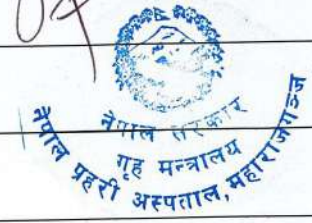 नेपाल सरकार
गृह मन्त्रालय
नेपाल प्रहरी अस्पताल, महाराजगञ्ज